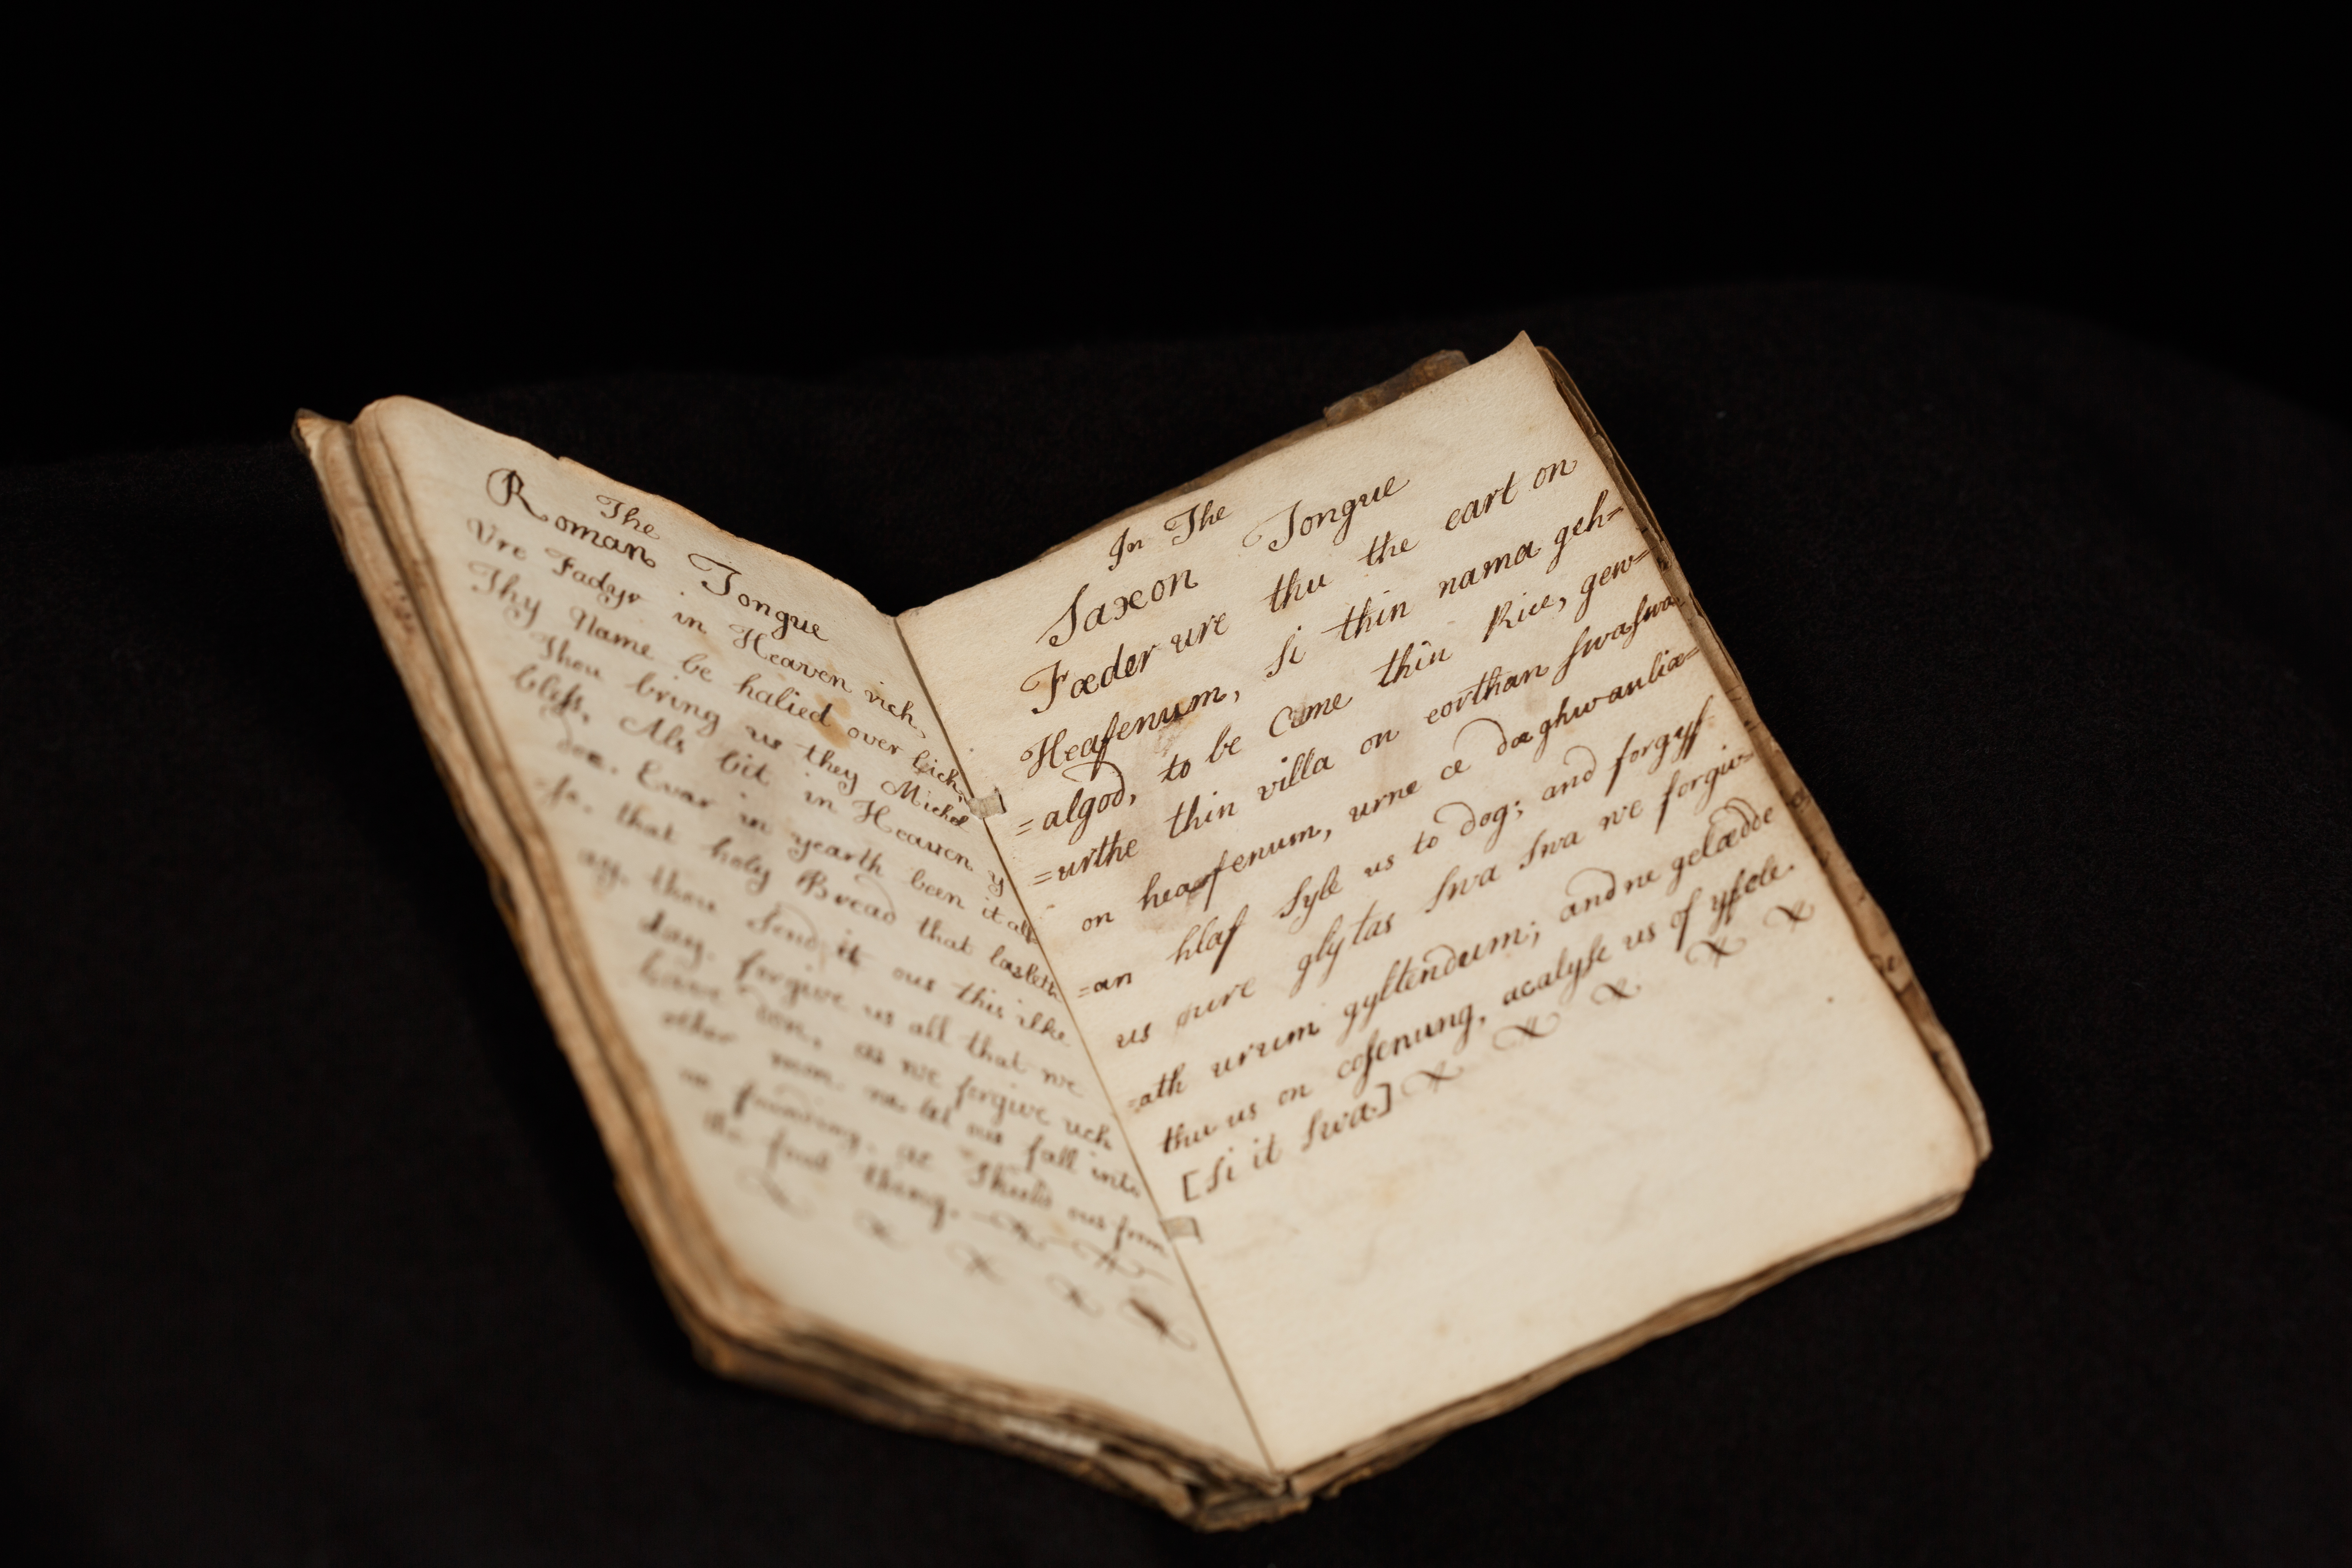 The
Roman Tongue
Ure Fadyr in Heaven rich,
Thy Name be halied over lich,
Thou bring us they Michel
bless, Als bit in Heaven y
doe. Evar in yearth been it als
-so, that holy Bread that lasteth
ay, thou send it ous this ilke
day, forgive us all that we
have don, as we forgive uch
other man, ne let ous fall into
no founding, ac Shuld ous from
the foul thing.
In The
Saxon Tongue
Fæder ure thu the eart on
Heafenum, si thin nama geh=
=algod, to be Cume thin Rice, gew=
=urthe thin villa on eorthan swaswa
on heafenum, urne ce dæghwanliæ=
=an hlaf syle us to dog; and forgyf
us ure glytas swa swa we forgiw=
=ath urum gyltendum; and ne gelædde
thu us on cosenung, acalyse us of yfele.
[Si it swa.]